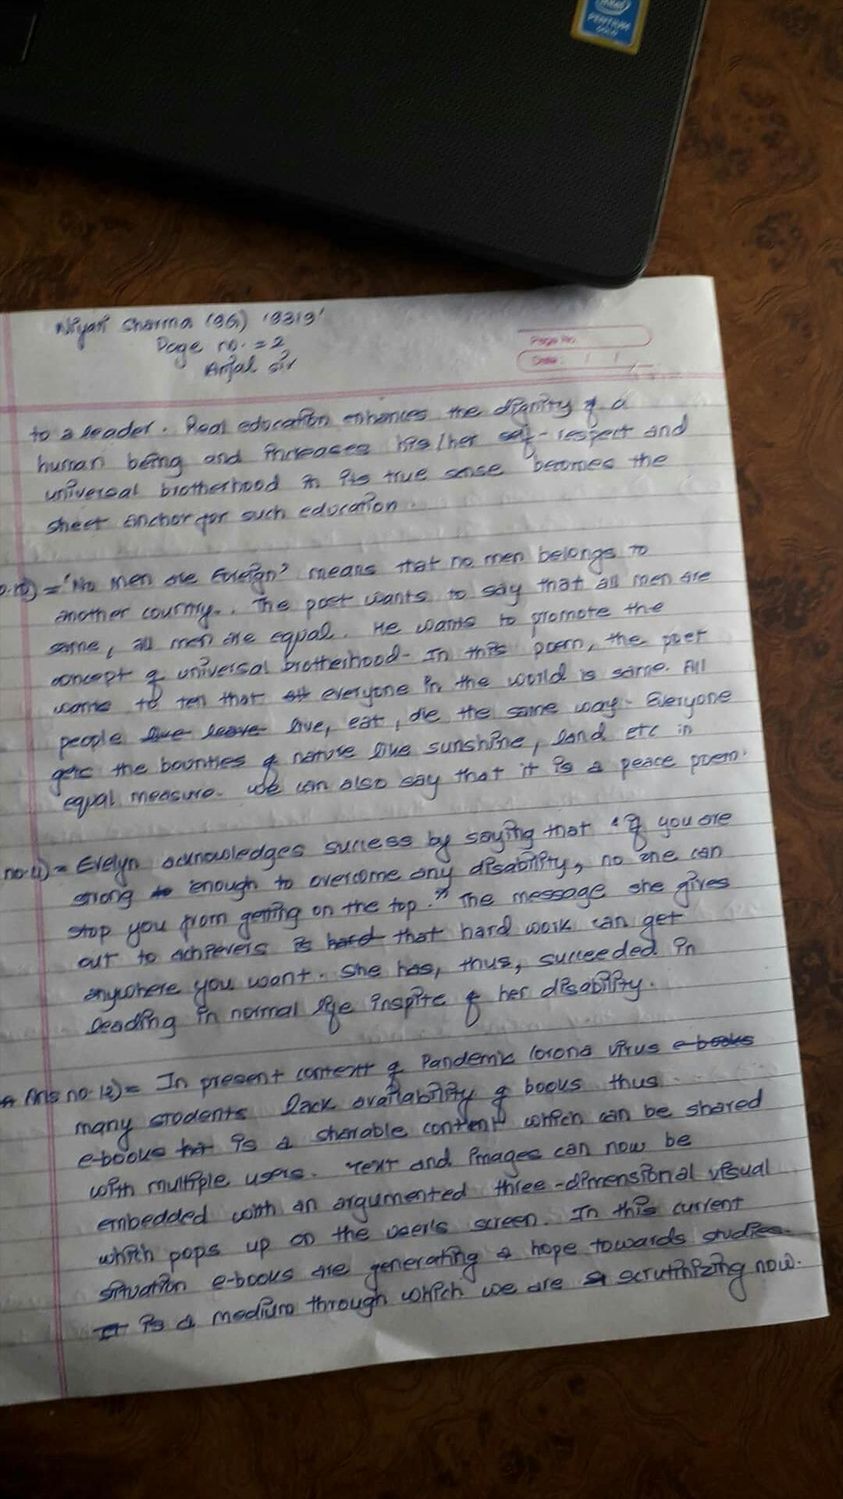 intel
PENTIUM
GOLD
Sharma (9G) '9319'
Page no. = 2
Anjal sir
Page No.
Date: / /
to a leader. Real education enhances the dignity of a
human being and increases his/her self-respect and
universal brotherhood in its true sense becomes the
sheet anchor for such education.
= 'No men are foreign' means that no men belongs to
another country.. The poet wants to say that all men are
same, all men are equal. He wants to promote the
concept of universal brotherhood. In this poem, the poet
wants to tell that everyone in the world is same. All
people live leave live, eat, die the same way. Everyone
gets the bounties of nature like sunshine, land etc in
equal measure. We can also say that it is a peace poem.
no.11) = Evelyn acknowledges success by saying that "If you are
strong to enough to overcome any disability, no one can
stop you from getting on the top." The message she gives
out to achievers is hard that hard work can get
anywhere you want. She has, thus, succeeded in
leading in normal life inspite of her disability.
Ans no.12) = In present context of Pandemic Corona virus e-books
many stodents lack availability of books thus
e-books is a sharable content which can be shared
with multiple users. Text and images can now be
embedded with an argumented three-dimensional visual
which pops up on the user's screen. In this current
situation e-books are generating a hope towards studies.
It is a medium through which we are scrutinizing now.